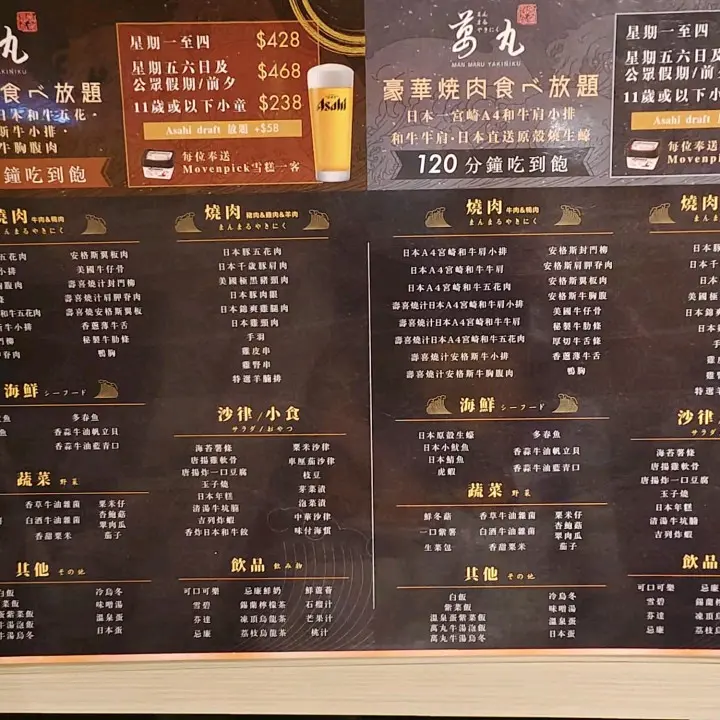 丸
MARU YAKINIKU
食べ放題
日本和牛五花・
斯牛小排・
牛胸腹肉
鐘吃到飽
星期一至四 $428
星期五六日及
公眾假期/前夕 $468
11歲或以下小童 $238
Asahi draft 放題 +$58
每位奉送
Movenpick雪糕一客
Asahi
燒肉 牛肉&鴨肉
まんまるやきにく
安格斯翼板肉
美國牛仔骨
壽喜燒汁封門柳
壽喜燒汁肩胛脊肉
壽喜燒安格斯翼板
香蔥薄牛舌
秘製牛肋條
鴨胸
燒肉 豬肉&雞肉&羊肉
まんまるやきにく
日本豚五花肉
日本千歲豚肩肉
美國極黑豬頸肉
日本豚肉眼
日本錦爽雞腿肉
日本雞頸肉
手羽
雞皮串
雞腎串
特選羊腩排
海鮮 シーフード
多春魚
香蒜牛油帆立貝
香蒜牛油藍青口
沙律/小食
サラダ/おやつ
海苔薯條
唐揚雞軟骨
唐揚炸一口豆腐
玉子燒
日本年糕
清湯牛坑腩
吉列炸蝦
香炸日本和牛餃
粟米沙律
車厘茄沙律
枝豆
芽菜漬
泡菜漬
中華沙律
味付海蜇
蔬菜 野菜
香草牛油雜菌
白酒牛油雜菌
香甜粟米
粟米仔
杏鮑菇
翠肉瓜
茄子
其他 その他
白飯
紫菜飯
溫泉蛋紫菜飯
萬丸牛湯泡飯
萬丸牛湯烏冬
冷烏冬
味噌湯
溫泉蛋
日本蛋
飲品 飲み物
可口可樂
雪碧
芬達
忌廉
忌廉鮮奶
錫蘭檸檬茶
凍頂烏龍茶
荔枝烏龍茶
鮮蘆薈
石榴汁
芒果汁
桃汁
萬丸
まん
まる
やきにく
MAN MARU YAKINIKU
豪華燒肉食べ放題
日本一宮崎A4和牛肩小排
和牛牛肩・日本直送原殼燒生蠔
120分鐘吃到飽
星期一至四
星期五六日及
公眾假期/前
11歲或以下小
Asahi draft 放
每位奉送
Movenpick
燒肉 牛肉&鴨肉
まんまるやきにく
日本A4宮崎和牛肩小排
日本A4宮崎和牛牛肩
日本A4宮崎和牛五花肉
壽喜燒汁日本A4宮崎和牛肩小排
壽喜燒汁日本A4宮崎和牛牛肩
壽喜燒汁日本A4宮崎和牛五花肉
壽喜燒汁安格斯牛小排
壽喜燒汁安格斯牛胸腹肉
安格斯封門柳
安格斯肩胛脊肉
安格斯翼板肉
安格斯牛胸腹
美國牛仔骨
秘製牛肋條
厚切牛舌條
香蔥薄牛舌
鴨胸
海鮮 シーフード
日本原殼生蠔
日本小魷魚
日本鯖魚
虎蝦
多春魚
香蒜牛油帆立貝
香蒜牛油藍青口
蔬菜 野菜
鮮冬菇
一口紫薯
生菜包
香草牛油雜菌
白酒牛油雜菌
香甜粟米
粟米仔
杏鮑菇
翠肉瓜
茄子
其他 その他
白飯
紫菜飯
溫泉蛋紫菜飯
萬丸牛湯泡飯
萬丸牛湯烏冬
冷烏冬
味噌湯
溫泉蛋
日本蛋
燒肉
まんまるやきにく
日本豚
日本千
美國極
日本
日本錦
日本
手
雞
雞
特選
沙律
サラダ
海苔薯條
唐揚雞軟骨
唐揚炸一口豆腐
玉子燒
日本年糕
清湯牛坑腩
吉列炸蝦
飲品
可口可樂
雪碧
芬達
忌廉
忌廉
錫蘭
凍頂
荔枝